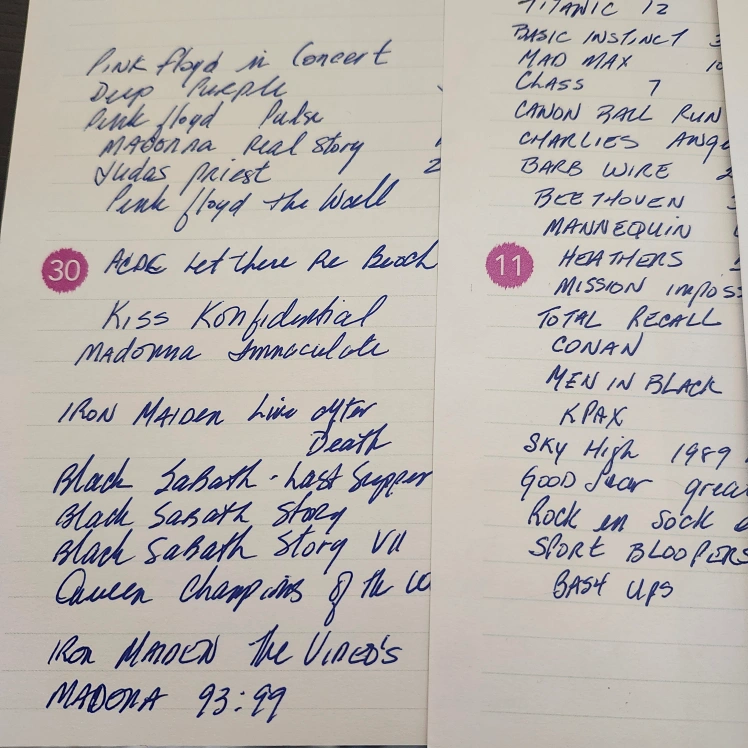 Pink floyd in Concert
Deep Purple
Pink floyd Pulse
MADONNA Real Story
Judas priest 2
Pink floyd the Wall
30 ACDC Let there Be
Kiss Konfidential
Madonna Immaculate
IRON MAIDEN Live after
Death
Black Sabath - Last Supper
Black Sabath Story
Black Sabath Story VII
Queen Champions of the W
IRON MAIDEN the VIDEO'S
MADONA 93:99
TITANIC 12
BASIC INSTINCT 3
MAD MAX 10
CLASS 7
CANON BALL RUN
CHARLIES ANG
BARB WIRE 2
BEETHOVEN 3
MANNEQUIN
11 HEATHERS
MISSION IMPOSS
TOTAL RECALL
CONAN
MEN IN BLACK
KPAX
SKY HIGH 1989
GOOD great
Rock en Sock
SPORT BLOOPERS
BASH UPS